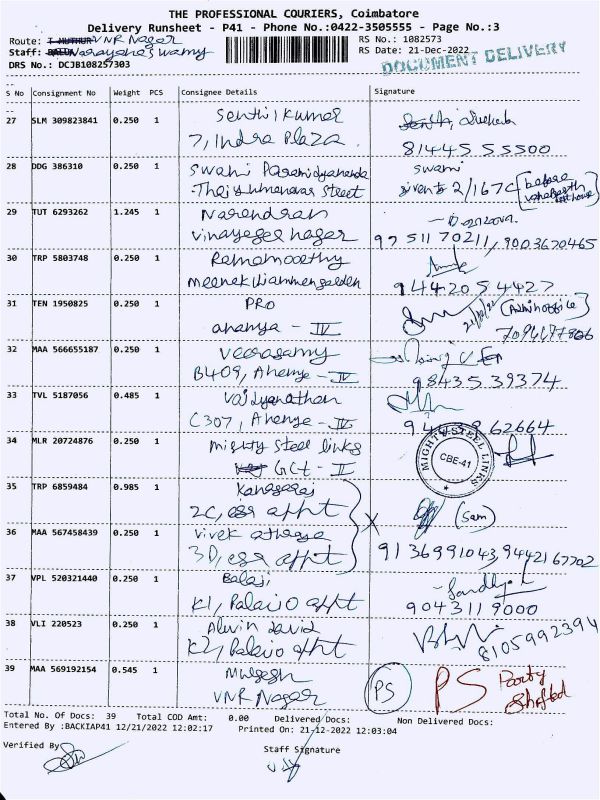 THE PROFESSIONAL COURIERS, Coimbatore
Delivery Runsheet - P41 - Phone No.:0422-3505555 - Page No.:3
Route: VNR Nagar RS No.: 1082573
Staff: Narayana swamy RS Date: 21-Dec-2022
DRS No.: DCJB108257303 DOCUMENT DELIVERY
S No Consignment No Weight PCS Consignee Details Signature
27 SLM 309823841 0.250 1 Senthil kumar
7, Indra Plaza 81445 55500
28 DDG 386310 0.250 1 Swami Swami
Street given to 2/167C (before last house)
29 TUT 6293262 1.245 1 Narendran
Vinayager nagar 97511 70211, 9003670465
30 TRP 5803748 0.250 1 Ramamoorthy
94420 54427
31 TEN 1950825 0.250 1 PRO (Admin office)
ananya - IV
32 MAA 566655187 0.250 1 Veerasamy
B409, Ananya - IV 98435 39374
33 TVL 5187056 0.485 1 Vaidyanathan
C307, Ananya - IV 62664
34 MLR 20724876 0.250 1 Mighty Steel links MIGHTY STEEL LINKS
GCt - II CBE-41
35 TRP 6859484 0.985 1 Kanagaraj
2C, appt (Sam)
36 MAA 567458439 0.250 1 Vivek
3D, appt 9136991043, 9442167702
37 VPL 520321440 0.250 1 Balaji
K1, Palazo appt 90431 19000
38 VLI 220523 0.250 1 Alwin david
K2, Palazo appt 8105992394
39 MAA 569192154 0.545 1 Mugesh PS PS Party Shifted
VNR Nagar
Total No. Of Docs: 39 Total COD Amt: 0.00 Delivered Docs: Non Delivered Docs:
Entered By :BACKIAP41 12/21/2022 12:02:17 Printed On: 21-12-2022 12:03:04
Verified By Staff Signature